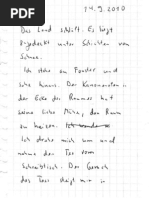 14.9.2010
Das Land schläft. Es liegt
zugedeckt unter Schichten von
Schnee.
Ich stehe am Fenster und
sehe hinaus. Der Kanonenofen in
der Ecke des Raumes hat
seine liebe Mühe, den Raum
zu heizen.
Ich drehe mich um und
nehme den Tee vom
Schreibtisch. Der Geruch
des Tees steigt mir in